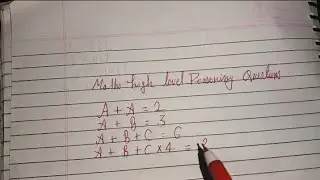 Maths high level Reasoning Questions
A + A = 2
A + B = 3
A + B + C = 6
A + B + C × 4 =